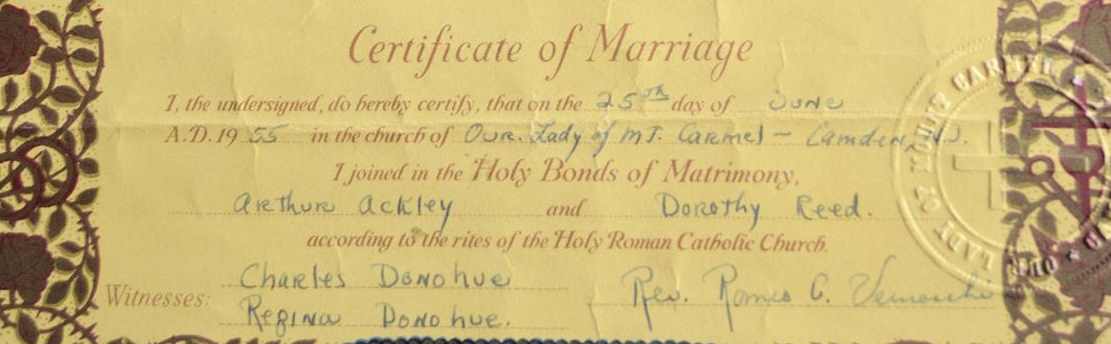 Certificate of Marriage
I, the undersigned, do hereby certify, that on the 25th day of June
A.D. 1955 in the church of Our Lady of Mt. Carmel - Camden, N.J.
I joined in the Holy Bonds of Matrimony,
Arthur Ackley and Dorothy Reed.
according to the rites of the Holy Roman Catholic Church.
Charles Donohue
Witnesses:
Regina Donohue.
Rev. Romeo C.
OUR LADY OF MOUNT CARMEL